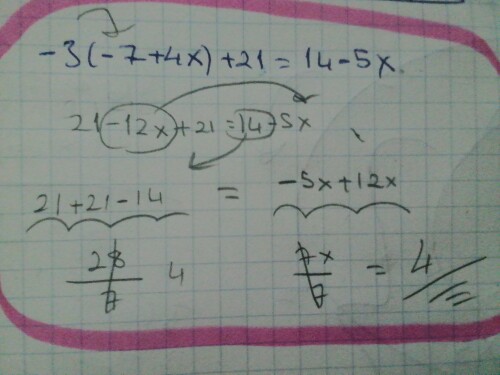 -3(-7+4x)+21=14-5x
21-12x+21=14-5x
21+21-14 = -5x+12x
28/7 4 7x/7 = 4